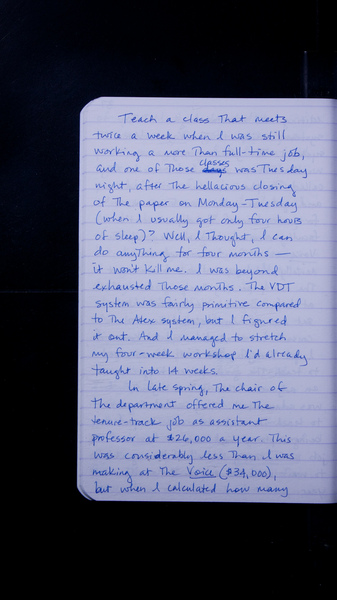 Teach a class that meets
twice a week when I was still
working a more than full-time job,
and one of those classes was Tuesday
night, after the hellacious closing
of the paper on Monday-Tuesday
(when I usually got only four hours
of sleep)? Well, I thought, I can
do anything for four months —
it won't kill me. I was beyond
exhausted those months. The VDT
system was fairly primitive compared
to the Atex system, but I figured
it out. And I managed to stretch
my four-week workshop I'd already
taught into 14 weeks.
In late spring, the chair of
the department offered me the
tenure-track job as assistant
professor at $26,000 a year. This
was considerably less than I was
making at the Voice ($34,000),
but when I calculated how many